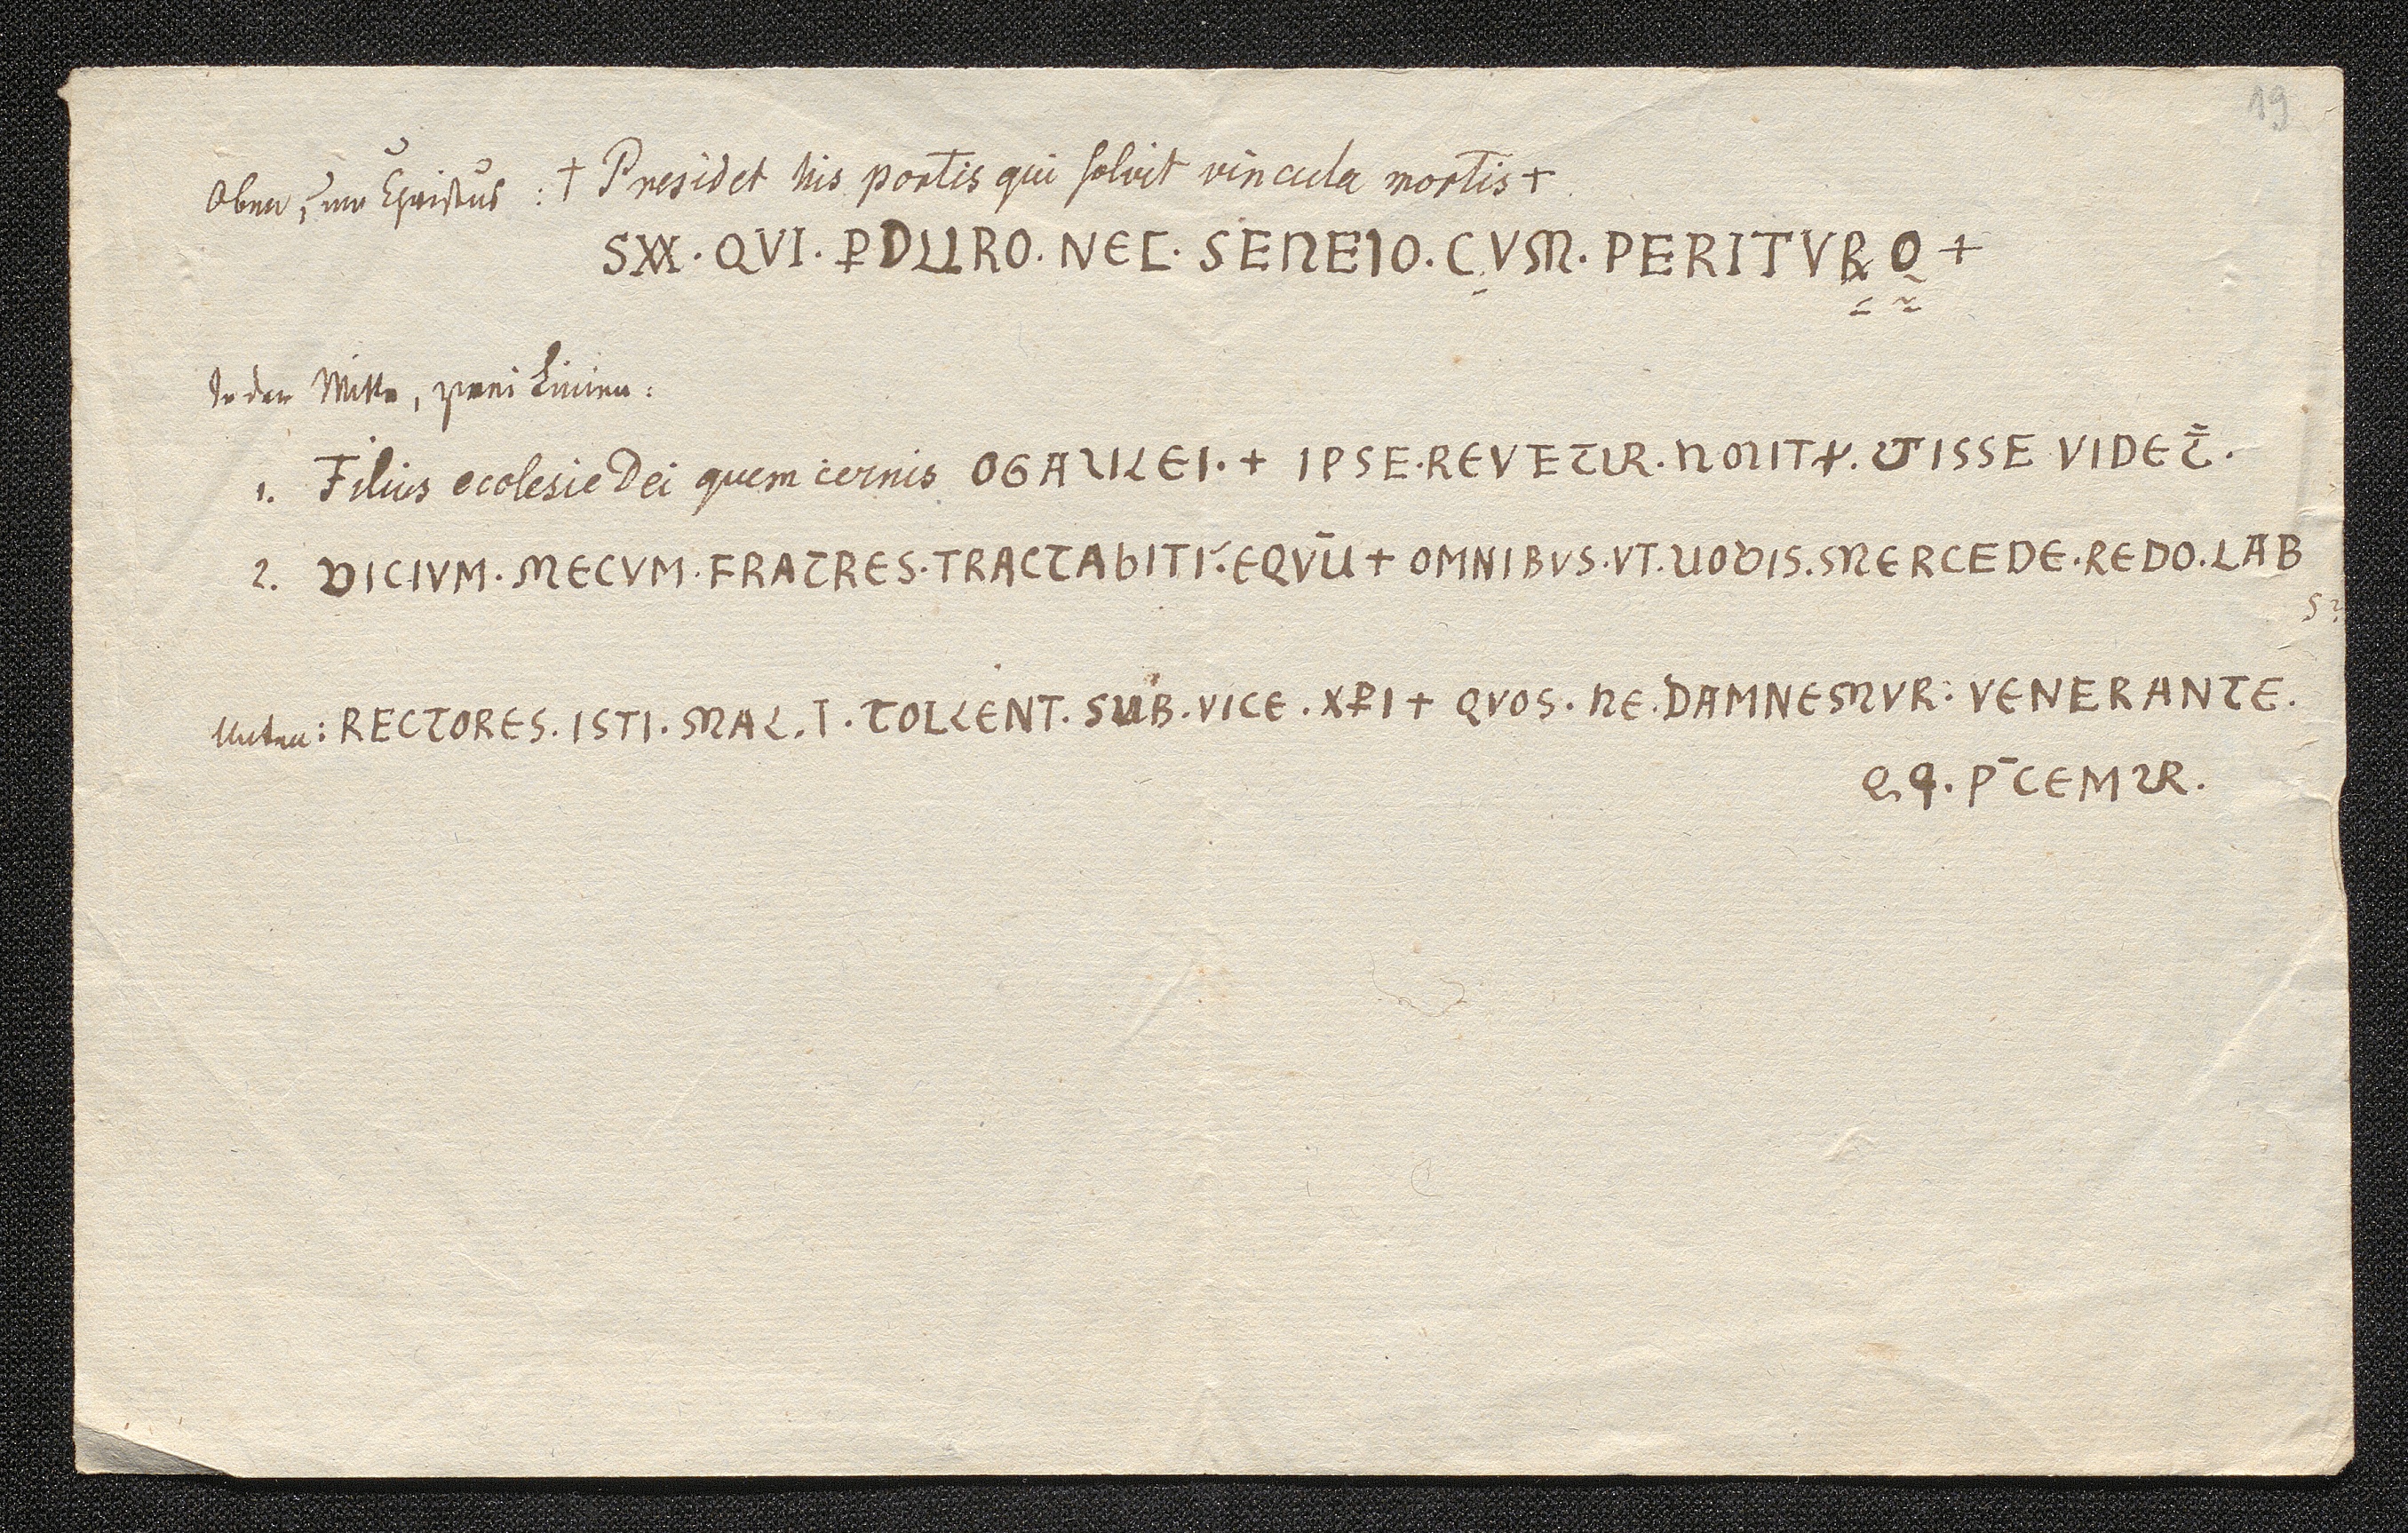 19
Oben, um Christus : † Presidet his portis qui solvit vincula mortis +
SXX · QVI · PDURO · NEC · SENEIO · CVM · PERITVRO +
In der Mitte, zwei Linien :
1. Filius ecclesie Dei quem cernis OGALILEI · + IPSE · REVETUR · NOUIT · ISSE VIDET̄ ·
2. VICIVM · MECVM · FRATRES · TRACTAbITI · EQVŪ + OMNIBVS · VT · UOBIS · MERCEDE · REDO · LAB
S ?
Unten : RECTORES · ISTI · MAL · I · TOLLENT · SUB · VICE · XPI + QVOS · NE · DAMNEMVR : VENERANTE ·
Q, q · P̄CEMUR ·